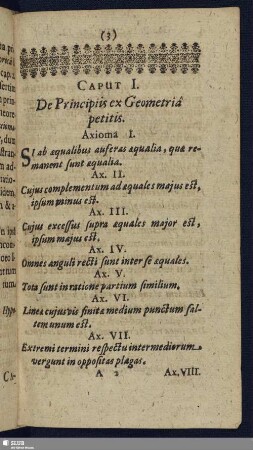 (3)
CAPUT I.
De Principiis ex Geometriâ
petitis.
Axioma I.
SI ab æqualibus auferas æqualia, quæ re-
manent sunt æqualia.
Ax. II.
Cujus complementum ad æquales majus est,
ipsum minus est.
Ax. III.
Cujus excessus supra æquales major est,
ipsum majus est.
Ax. IV.
Omnes anguli recti sunt inter se æquales.
Ax. V.
Tota sunt in ratione partium similium.
Ax. VI.
Lineæ cujusvis finitæ medium punctum sal-
tem unum est.
Ax. VII.
Extremi termini respectu intermediorum
vergunt in oppositas plagas.
A 2 Ax. VIII.